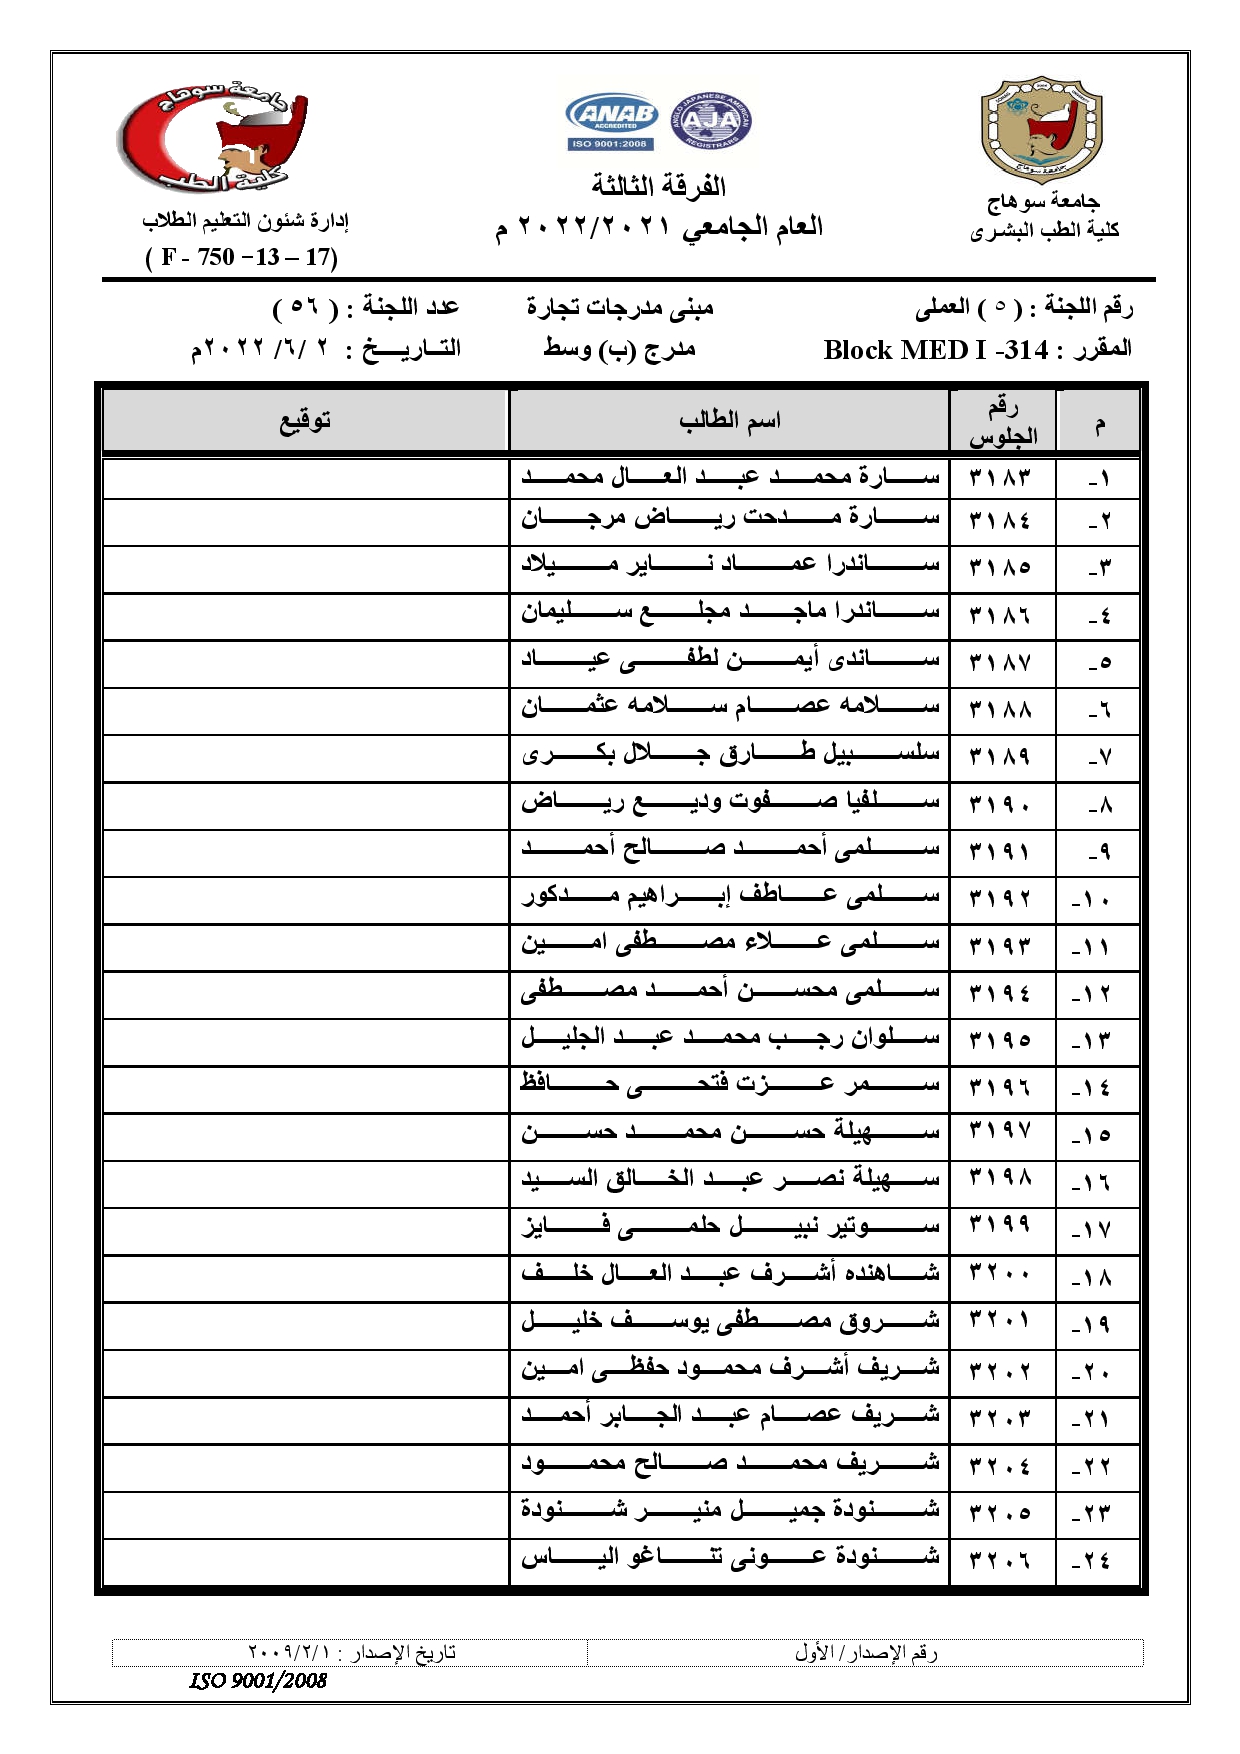 جامعة سوهاج
كلية الطب
ANAB
ACCREDITED
ISO 9001:2008
ANGLO JAPANESE AMERICAN
AJA
REGISTRARS
جامعة سوهاج
جامعة سوهاج
كلية الطب البشرى
الفرقة الثالثة
العام الجامعي ٢٠٢٢/٢٠٢١ م
إدارة شئون التعليم الطلاب
( F - 750 –13 – 17)
رقم اللجنة : ( ٥ ) العملى مبنى مدرجات تجارة عدد اللجنة : ( ٥٦ )
المقرر : Block MED I -314 مدرج (ب) وسط التـاريـــخ : ٢ /٦/ ٢٠٢٢م
م رقم الجلوس اسم الطالب توقيع
١- ٣١٨٣ سارة محمد عبد العال محمد
٢- ٣١٨٤ سارة مدحت رياض مرجان
٣- ٣١٨٥ ساندرا عماد ناير ميلاد
٤- ٣١٨٦ ساندرا ماجد مجلع سليمان
٥- ٣١٨٧ ساندى أيمن لطفى عياد
٦- ٣١٨٨ سلامه عصام سلامه عثمان
٧- ٣١٨٩ سلسبيل طارق جلال بكرى
٨- ٣١٩٠ سلفيا صفوت وديع رياض
٩- ٣١٩١ سلمى أحمد صالح أحمد
١٠- ٣١٩٢ سلمى عاطف إبراهيم مدكور
١١- ٣١٩٣ سلمى علاء مصطفى امين
١٢- ٣١٩٤ سلمى محسن أحمد مصطفى
١٣- ٣١٩٥ سلوان رجب محمد عبد الجليل
١٤- ٣١٩٦ سمر عزت فتحى حافظ
١٥- ٣١٩٧ سهيلة حسن محمد حسن
١٦- ٣١٩٨ سهيلة نصر عبد الخالق السيد
١٧- ٣١٩٩ سوتير نبيل حلمى فايز
١٨- ٣٢٠٠ شاهنده أشرف عبد العال خلف
١٩- ٣٢٠١ شروق مصطفى يوسف خليل
٢٠- ٣٢٠٢ شريف أشرف محمود حفظى امين
٢١- ٣٢٠٣ شريف عصام عبد الجابر أحمد
٢٢- ٣٢٠٤ شريف محمد صالح محمود
٢٣- ٣٢٠٥ شنودة جميل منير شنودة
٢٤- ٣٢٠٦ شنودة عونى تناغو الياس
رقم الإصدار/ الأول تاريخ الإصدار : ٢٠٠٩/٢/١
ISO 9001/2008